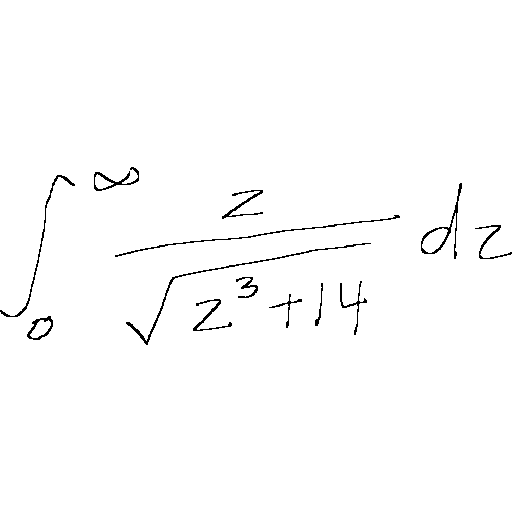 \int_0^\infty \frac{z}{\sqrt{z^3+14}} dz